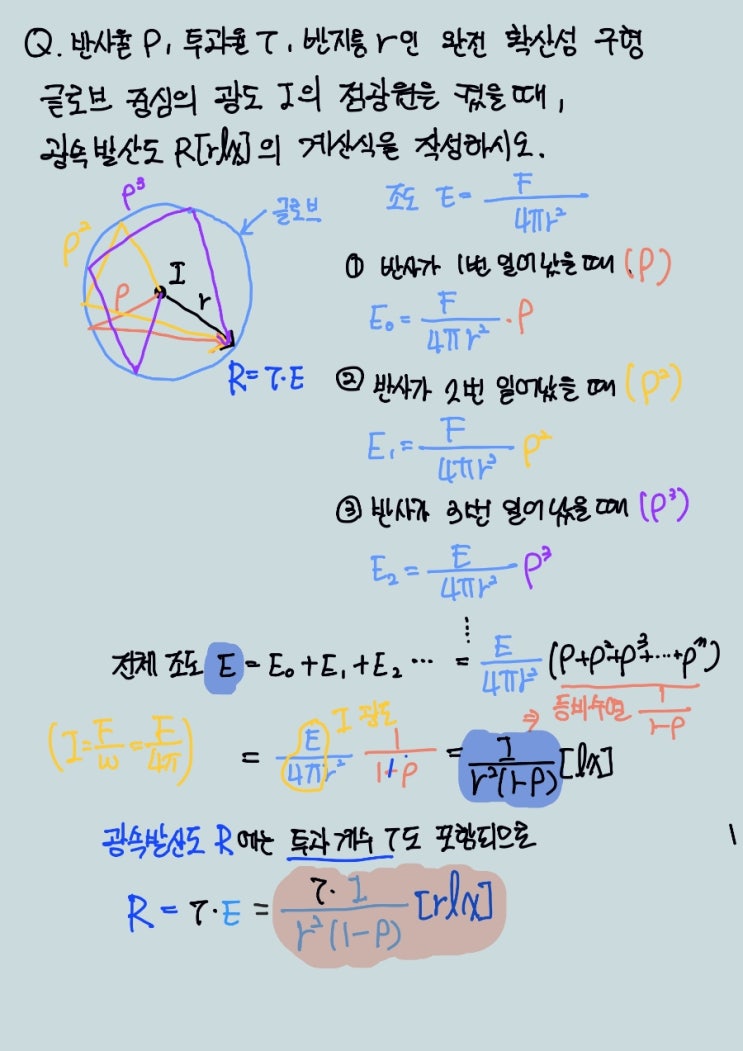 Q. 반사율 ρ, 투과율 τ, 반지름 r인 완전 확산성 구형
글로브 중심의 광도 I의 점광원을 켰을 때,
광속발산도 R[rlx]의 계산식을 작성하시오.
ρ³
ρ²
ρ
I
r
글로브
R = τ·E
조도 E = F / 4πr²
① 반사가 1번 일어났을 때 (ρ)
E₀ = F / 4πr² · ρ
② 반사가 2번 일어났을 때 (ρ²)
E₁ = F / 4πr² ρ²
③ 반사가 3번 일어났을 때 (ρ³)
E₂ = E / 4πr² ρ³
⋮
전체 조도 E = E₀ + E₁ + E₂ ⋯ = E / 4πr² (ρ+ρ²+ρ³+⋯+ρⁿ)
⇒ 등비수열 1 / 1-ρ
(I = F / ω = F / 4π)
I 광도
= E / 4πr² 1 / 1-ρ = I / r²(1-ρ) [lx]
광속발산도 R에는 투과계수 τ도 포함되므로
R = τ·E = τ·I / r²(1-ρ) [rlx]